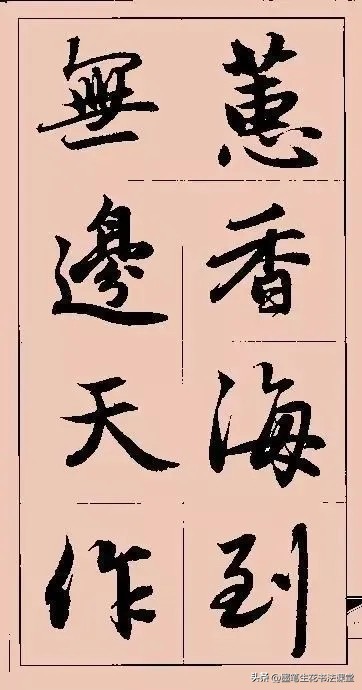 蕙香海到
無邊天作
头条 @墨笔生花书法课堂